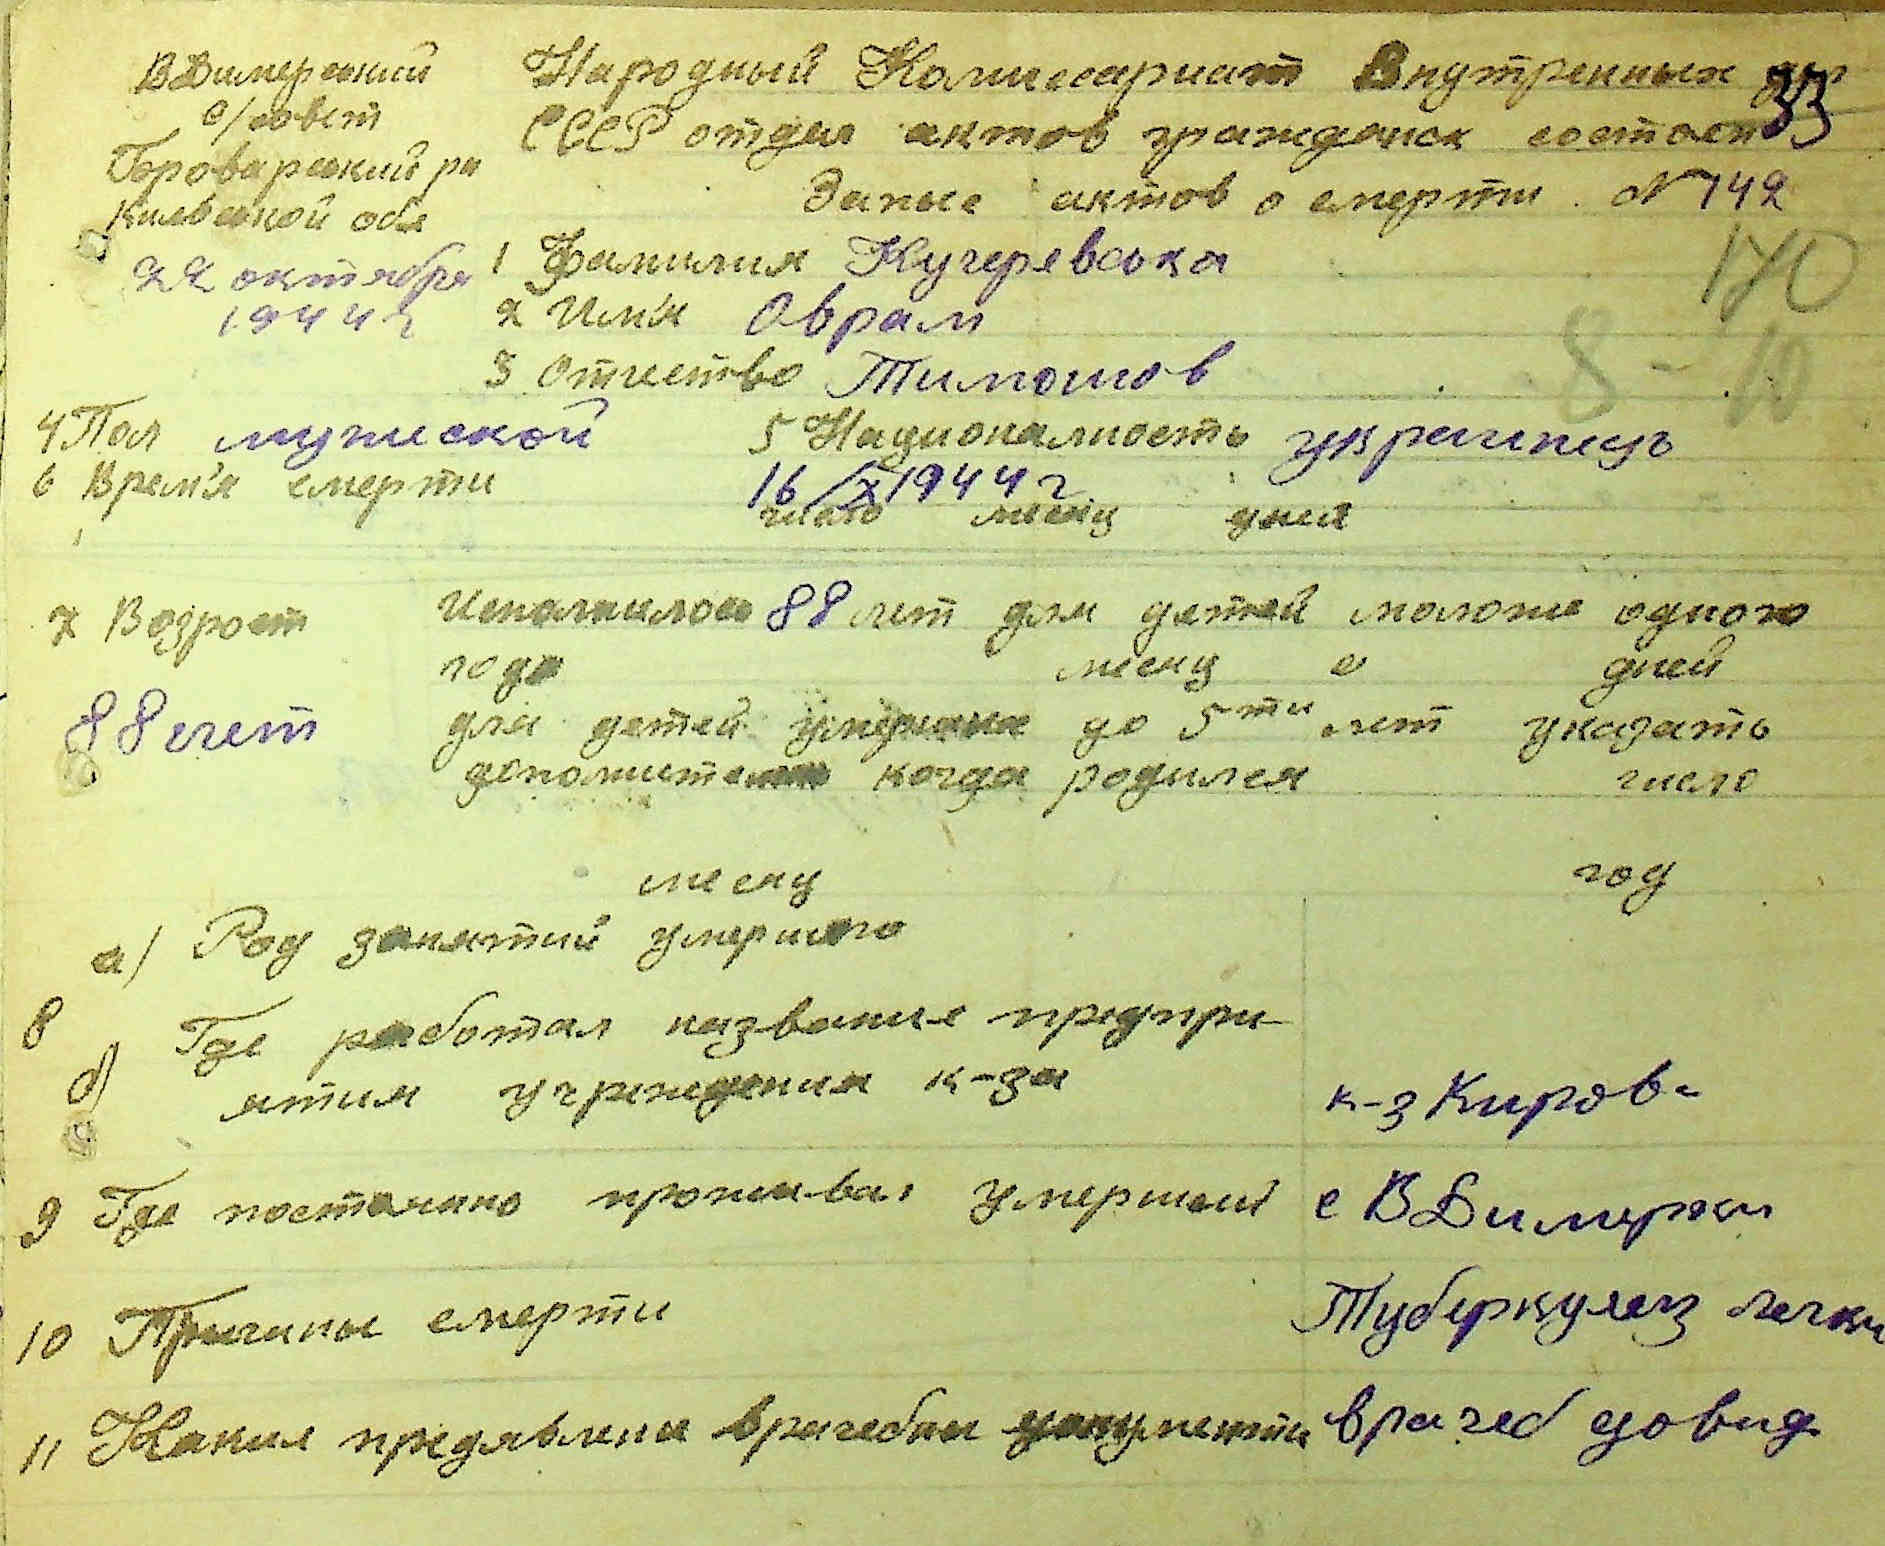 ВДимерский
с/совет
Броварський ра
Киевской обл
22 октября
1944 г
Народный Комиссариат Внутренных дел
33
СССР отдел актов гражданск состоян
Запис актов о смерти N 142
170
1 Фамилия Кучеревська
2 Им'я Оврам
3 Отчество Тимошов
8-10
4 Пол мужеской 5 Национальность украинець
6 Врем'я смерти 16/X 1944 г
число месяц дня
7 Возрост Исполнилось 88 лет для детей моложе одного
года месяц е дней
88 лет для детей умерших до 5ти лет указать
дополнительно когда родился число
месяц год
а) Род занятий умершего
8
б) Где работал название предпри-
ятия учреждения к-за к-з Кирова
9 Где постоянно проживал умерший с ВДимерки
10 Причины смерти Туберкулез легких
11 Какие предявлени врачебни документи врачеб довид